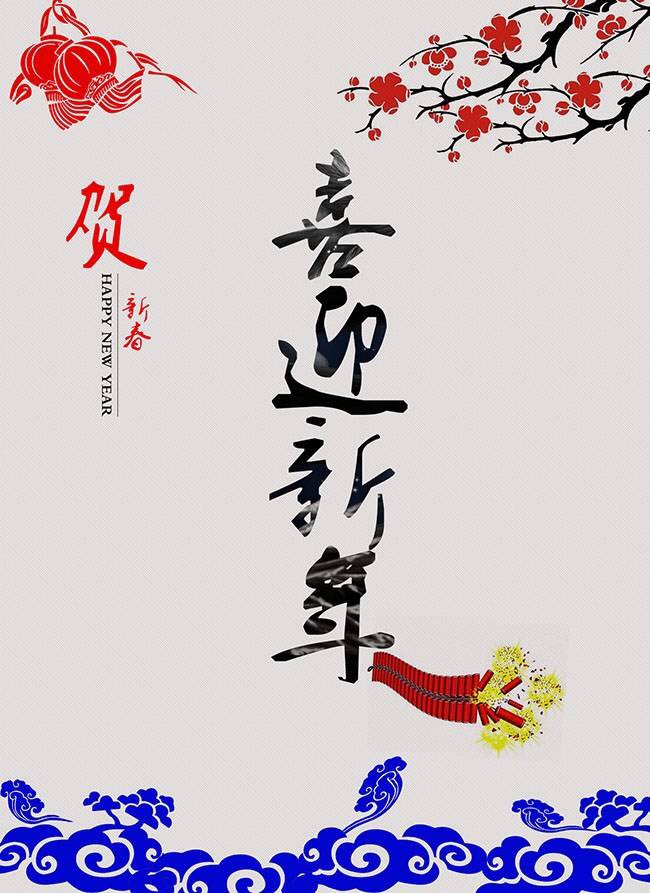 喜迎新年
贺
新春
HAPPY NEW YEAR